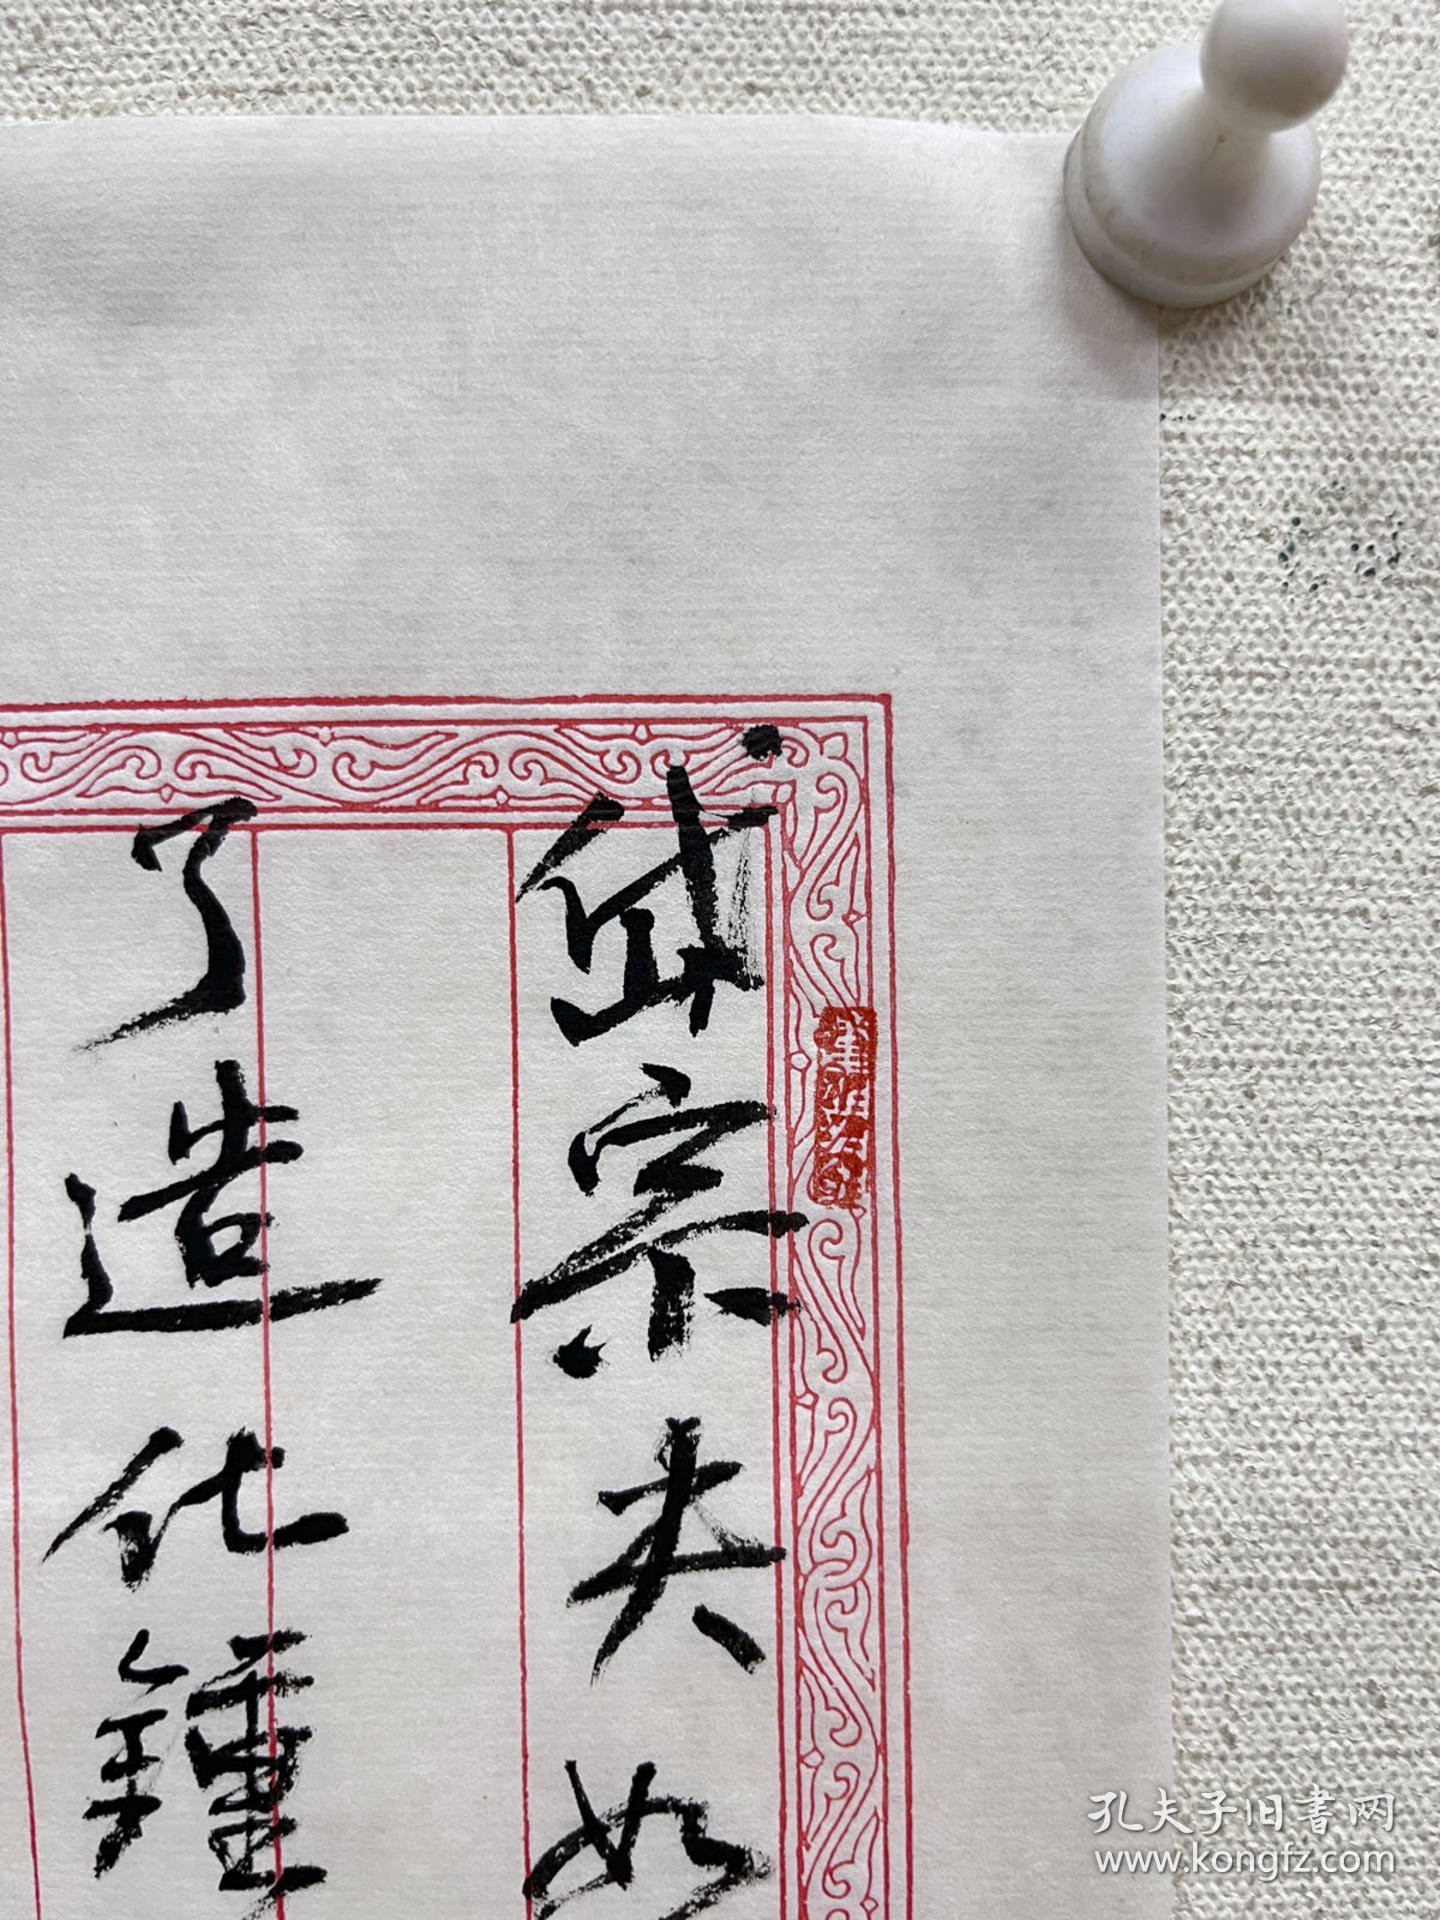 岱宗夫如
了造化鍾
孔夫子旧書网
www.kongfz.com